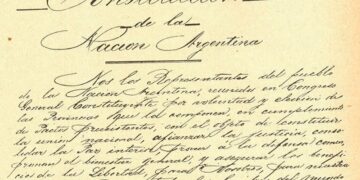 Constitución
de la
Nacion Argentina
Nos los Representantes del pueblo
de la Nacion Argentina, reunidos en Congreso
General Constituyente por voluntad y eleccion de
las Provincias que la componen, en cumplimiento
de Pactos preexistentes, con el objeto de constituir
la union nacional, afianzar la justicia, conso-
lidar la paz interior, proveer á la defensa comun,
promover el bienestar general, y asegurar los benefi-
cios de la libertad, para Nosotros, para
del mundo